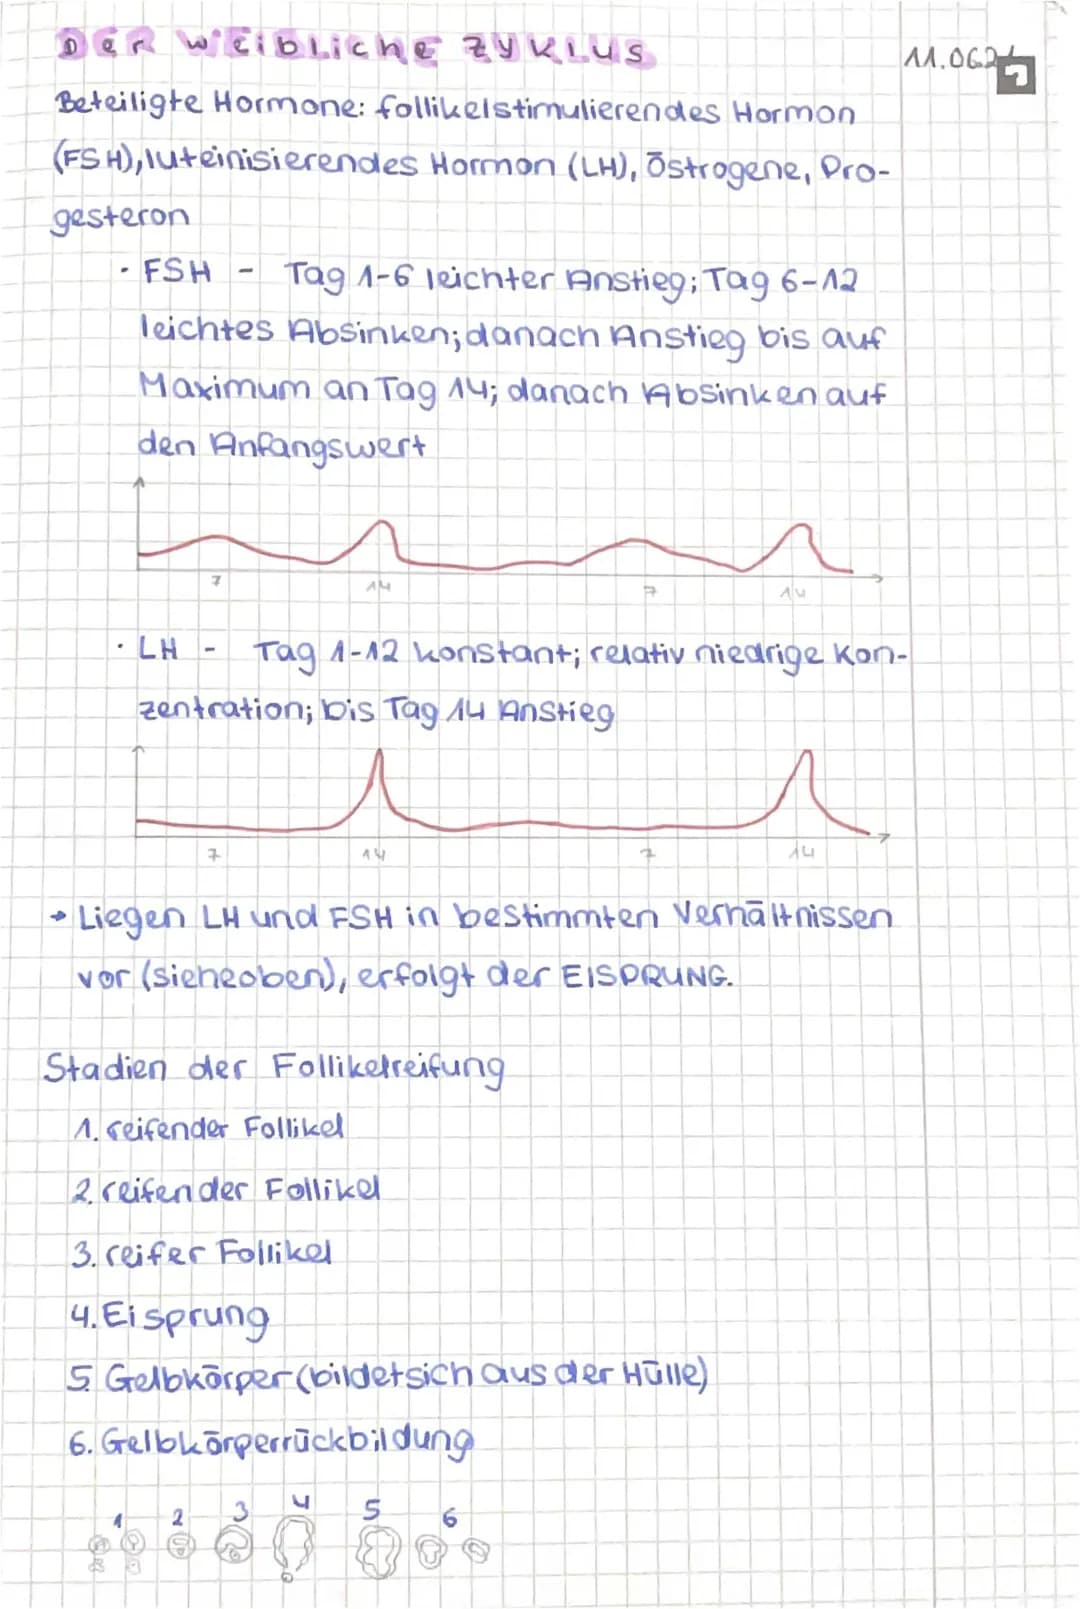 DER WEIBLICHE ZYKLUS
11.06.21
Beteiligte Hormone: follikelstimulierendes Hormon
(FSH), luteinisierendes Hormon (LH), Östrogene, Pro-
gesteron
· FSH - Tag 1-6 leichter Anstieg; Tag 6-12
leichtes Absinken; danach Anstieg bis auf
Maximum an Tag 14; danach Absinken auf
den Anfangswert
7 14 7 14
· LH - Tag 1-12 konstant; relativ niedrige Kon-
zentration; bis Tag 14 Anstieg
7 14 7 14
→ Liegen LH und FSH in bestimmten Verhältnissen
vor (siehe oben), erfolgt der EISPRUNG.
Stadien der Follikelreifung
1. reifender Follikel
2. reifender Follikel
3. reifer Follikel
4. Eisprung
5. Gelbkörper (bildet sich aus der Hülle)
6. Gelbkörperrückbildung
1 2 3 4 5 6